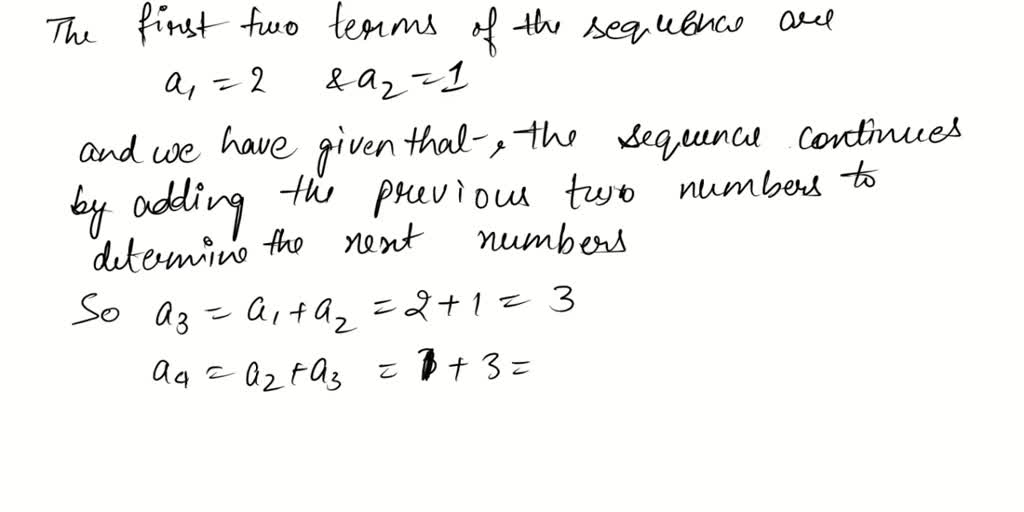 The first two terms of the sequence are
a₁ = 2 & a₂ = 1
and we have given that, the sequence continues
by adding the previous two numbers to
determine the next numbers
So a₃ = a₁ + a₂ = 2 + 1 = 3
a₄ = a₂ + a₃ = 1 + 3 =